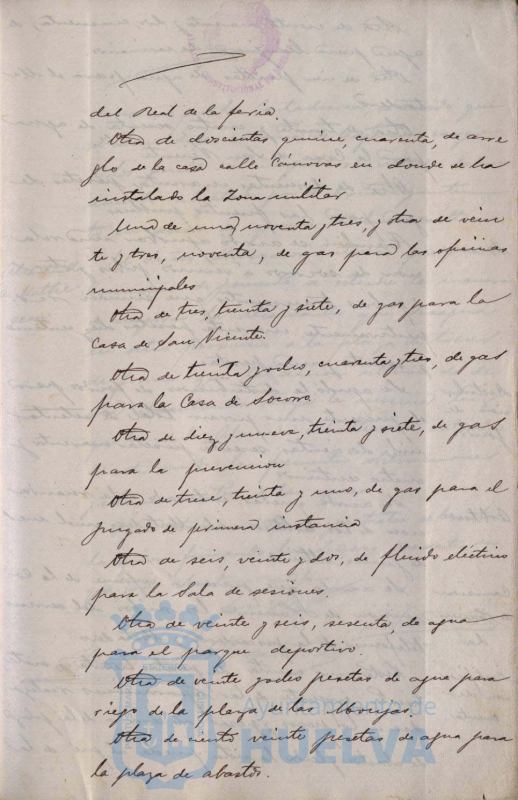 del Real de la feria.
Otra de doscientas quince, cuarenta, de arre
glo de la casa calle Cánovas en donde se ha
instalado la Zona militar
Una de una, noventa y tres, y otra de vein
te y tres, noventa, de gas para las oficinas
municipales
Otra de tres, treinta y siete, de gas para la
casa de San Vicente.
Otra de treinta y ocho, cuarenta y tres, de gas
para la Casa de Socorro.
Otra de diez y nueve, treinta y siete, de gas
para la prevencion
Otra de trece, treinta y uno, de gas para el
Juzgado de primera instancia
Otra de seis, veinte y dos, de fluido eléctrico
para la Sala de sesiones.
Otra de veinte y seis, sesenta, de agua
para el parque deportivo.
Otra de veinte y ocho pesetas de agua para
riego de la plaza de las Monjas.
Otra de ciento veinte pesetas de agua para
la plaza de abastos.
Ayuntamiento de
HUELVA